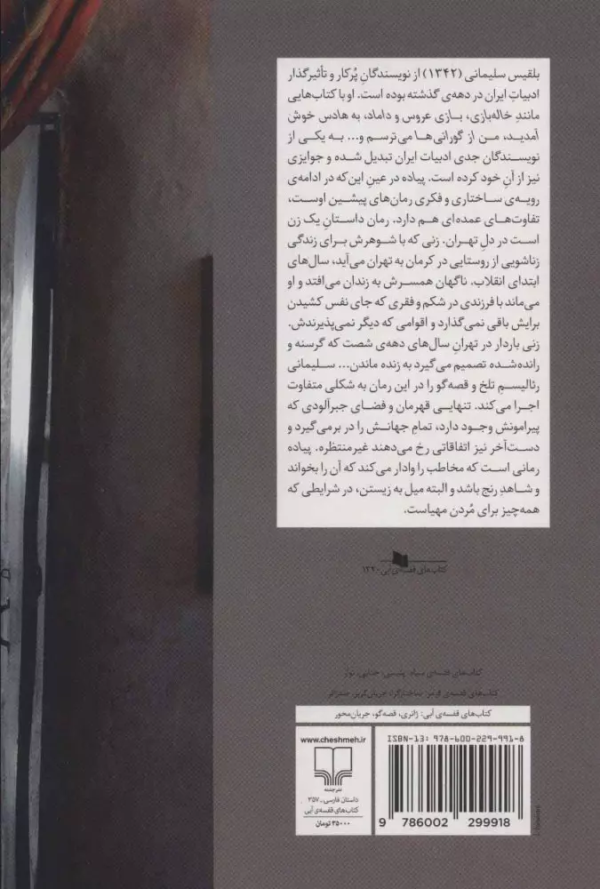 بلقیس سلیمانی (۱۳۴۲) از نویسندگانِ پُرکار و تأثیرگذار
ادبیاتِ ایران در دهه‌ی گذشته بوده است. او با کتاب‌هایی
مانندِ خاله‌بازی، بازی عروس و داماد، به هادس خوش
آمدید، من از گورانی‌ها می‌ترسم و... به یکی از
نویسندگان جدی ادبیات ایران تبدیل شده و جوایزی
نیز از آنِ خود کرده است. پیاده در عینِ این‌که در ادامه‌ی
رویه‌ی ساختاری و فکری رمان‌های پیشین اوست،
تفاوت‌های عمده‌ای هم دارد. رمان داستانِ یک زن
است در دلِ تهران. زنی که با شوهرش برای زندگی
زناشویی از روستایی در کرمان به تهران می‌آید، سال‌های
ابتدای انقلاب. ناگهان همسرش به زندان می‌افتد و او
می‌ماند با فرزندی در شکم و فقری که جای نفس کشیدن
برایش باقی نمی‌گذارد و اقوامی که دیگر نمی‌پذیرندش.
زنی باردار در تهرانِ سال‌های دهه‌ی شصت که گرسنه و
رانده‌شده تصمیم می‌گیرد به زنده ماندن... سلیمانی
رئالیسمِ تلخ و قصه‌گو را در این رمان به شکلی متفاوت
اجرا می‌کند. تنهایی قهرمان و فضای جبرآلودی که
پیرامونش وجود دارد، تمامِ جهانش را در برمی‌گیرد و
دست‌آخر نیز اتفاقاتی رخ می‌دهند غیرمنتظره. پیاده
رمانی است که مخاطب را وادار می‌کند که آن را بخواند
و شاهدِ رنج باشد و البته میل به زیستن، در شرایطی که
همه‌چیز برای مُردن مهیاست.
کتاب‌های قفسه‌ی آبی
کتاب‌های قفسه‌ی سیاه: پلیسی، جنایی، نوآر
کتاب‌های قفسه‌ی قرمز: ساختارگرا، جریان‌گریز، ضدژانر
کتاب‌های قفسه‌ی آبی: ژانری، قصه‌گو، جریان‌محور
www.cheshmeh.ir
نشرچشمه
داستان فارسی ـ ۳۵۷
کتاب‌های قفسه‌ی آبی
۳۵۰۰۰ تومان
ISBN-13: 978-600-229-991-8
9 786002 299918